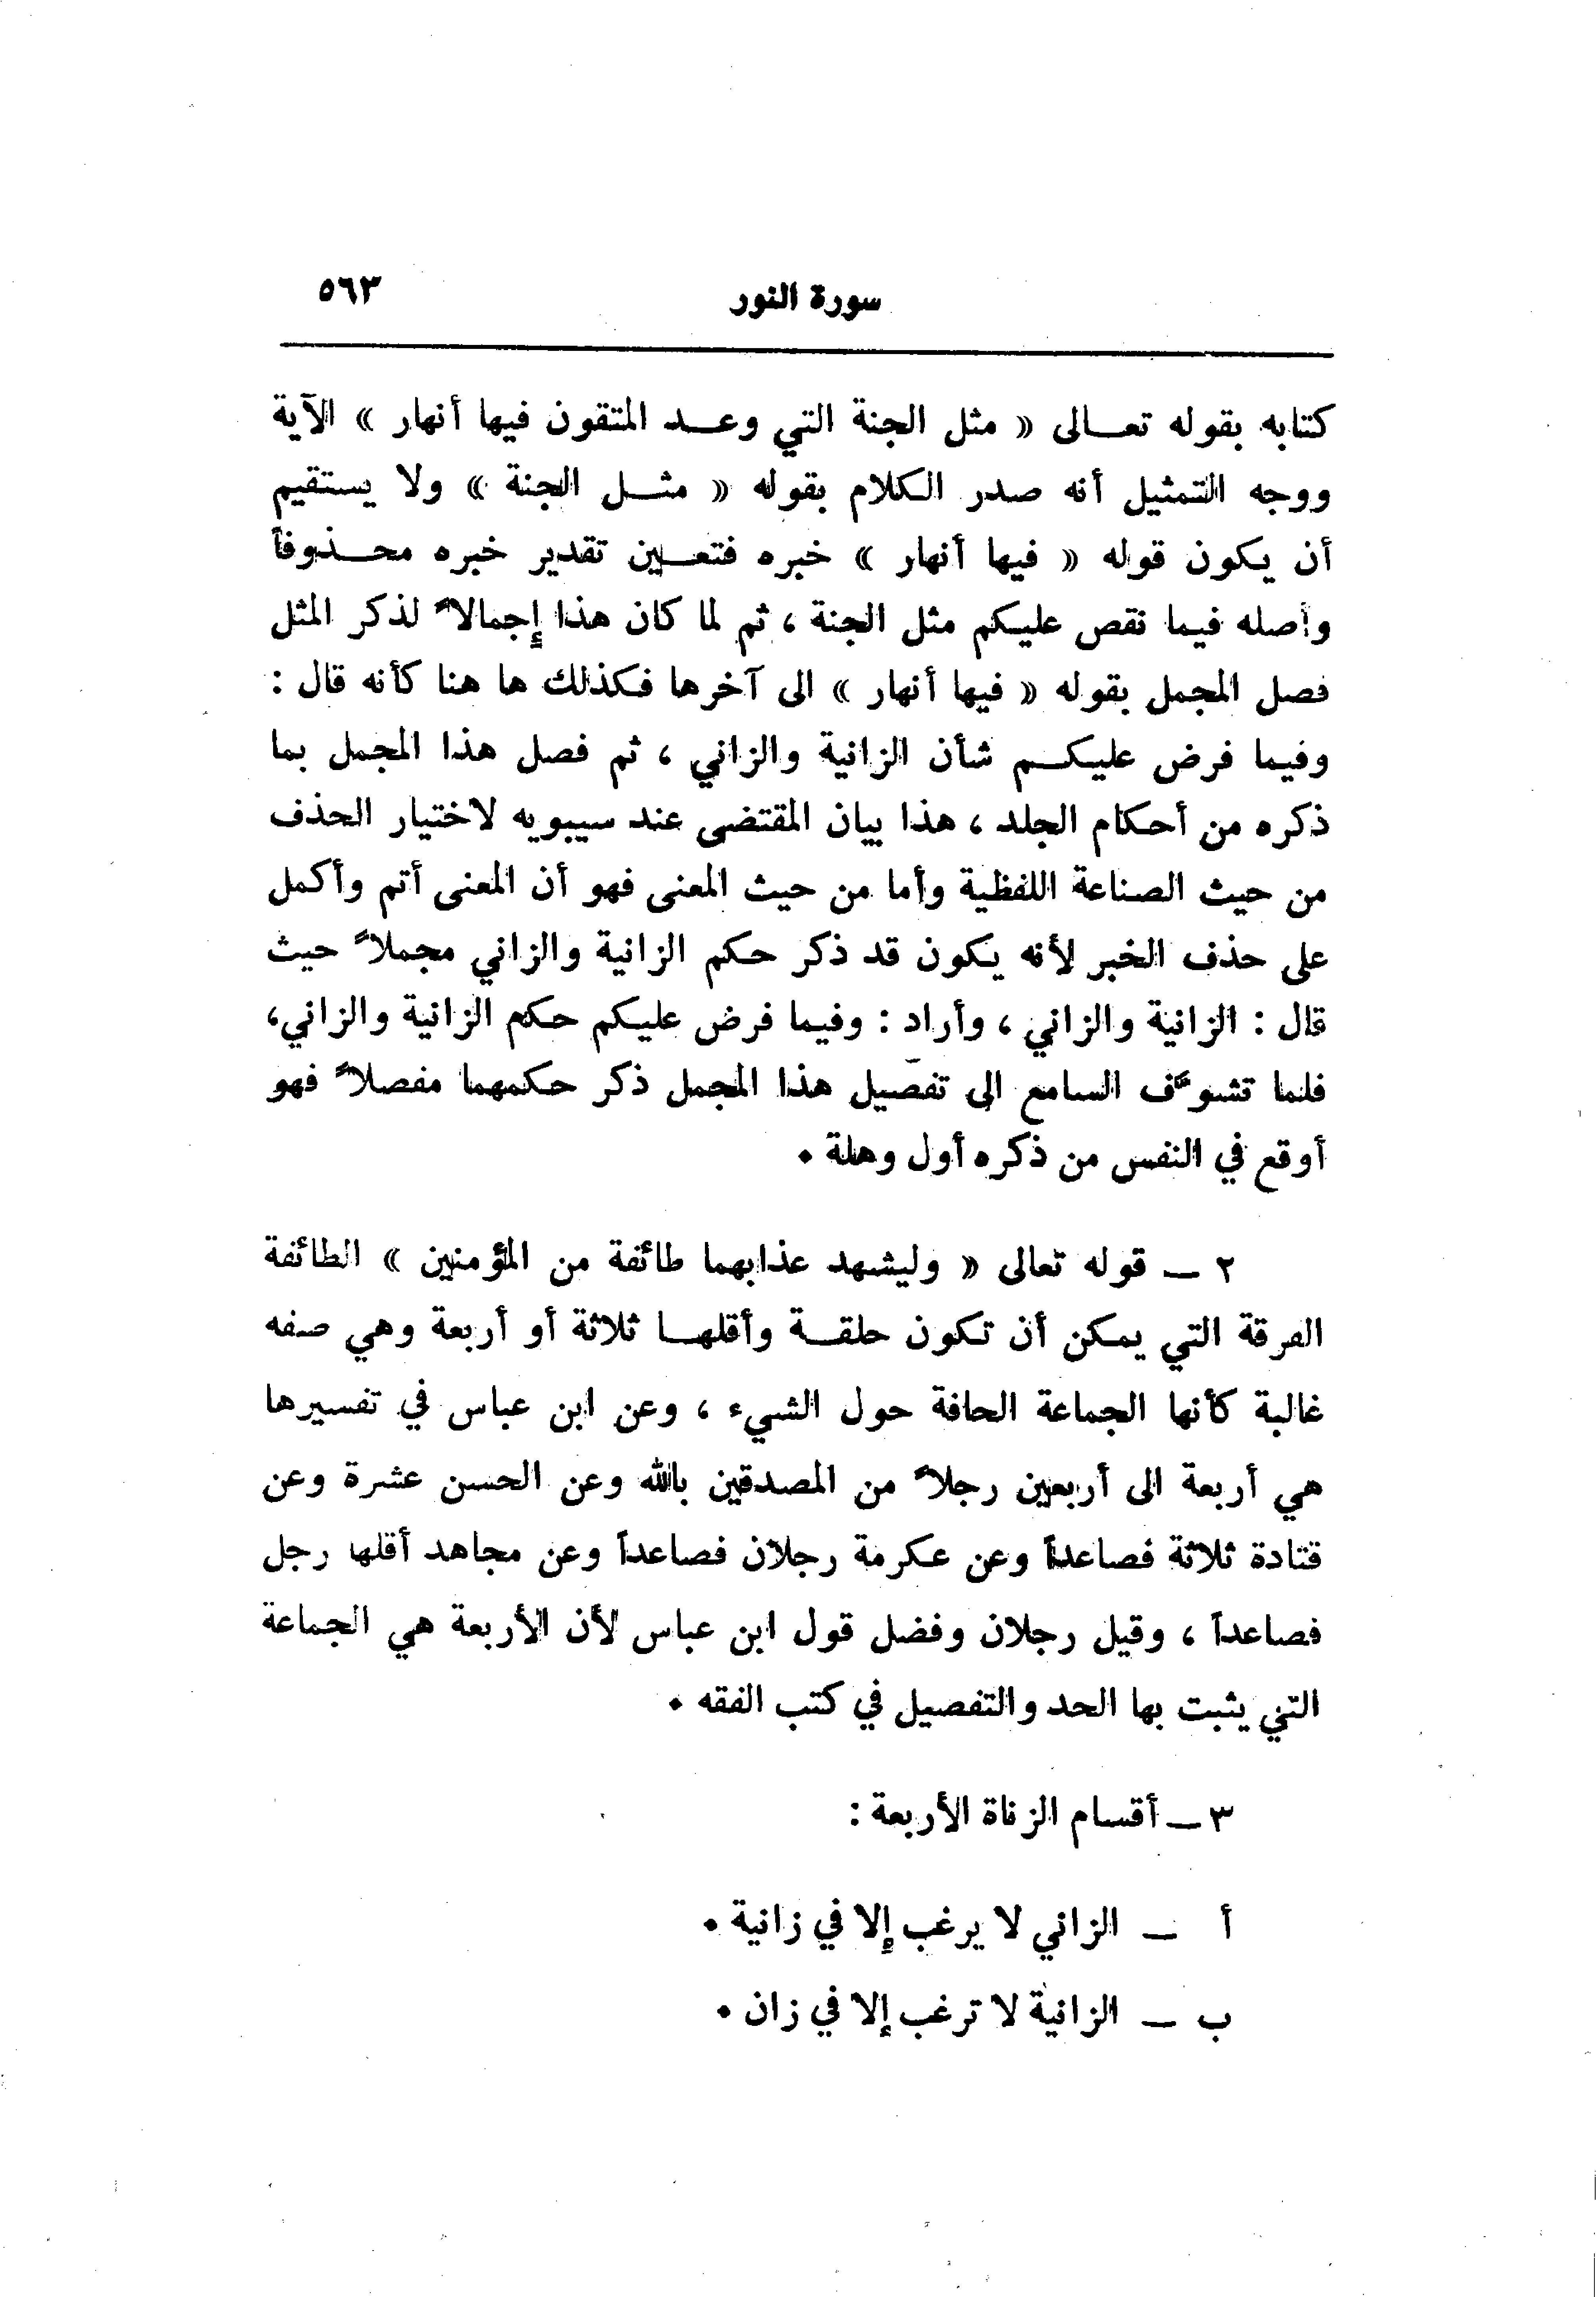 سورة النور ٥٦٣
كتابه بقوله تعالى « مثل الجنة التي وعد المتقون فيها أنهار » الآية
ووجه التمثيل أنه صدر الكلام بقوله « مثل الجنة » ولا يستقيم
أن يكون قوله « فيها أنهار » خبره فتعين تقدير خبره محذوفاً
وأصله فيما نقص عليكم مثل الجنة ، ثم لما كان هذا إجمالاً لذكر المثل
فصل المجمل بقوله « فيها أنهار » الى آخرها فكذلك ها هنا كأنه قال :
وفيما فرض عليكم شأن الزانية والزاني ، ثم فصل هذا المجمل بما
ذكره من أحكام الجلد ، هذا بيان المقتضى عند سيبويه لاختيار الحذف
من حيث الصناعة اللفظية وأما من حيث المعنى فهو أن المعنى أتم وأكمل
على حذف الخبر لأنه يكون قد ذكر حكم الزانية والزاني مجملاً حيث
قال : الزانية والزاني ، وأراد : وفيما فرض عليكم حكم الزانية والزاني،
فلما تشوَّف السامع الى تفصيل هذا المجمل ذكر حكمهما مفصلاً فهو
أوقع في النفس من ذكره أول وهلة .
٢ – قوله تعالى « وليشهد عذابهما طائفة من المؤمنين » الطائفة
الفرقة التي يمكن أن تكون حلقة وأقلها ثلاثة أو أربعة وهي صفه
غالبة كأنها الجماعة الحافة حول الشيء ، وعن ابن عباس في تفسيرها
هي أربعة الى أربعين رجلاً من المصدقين بالله وعن الحسن عشرة وعن
قتادة ثلاثة فصاعداً وعن عكرمة رجلان فصاعداً وعن مجاهد أقلها رجل
فصاعداً ، وقيل رجلان وفضل قول ابن عباس لأن الأربعة هي الجماعة
التي يثبت بها الحد والتفصيل في كتب الفقه .
٣ – أقسام الزناة الأربعة :
أ – الزاني لا يرغب إلا في زانية .
ب – الزانية لا ترغب إلا في زان .